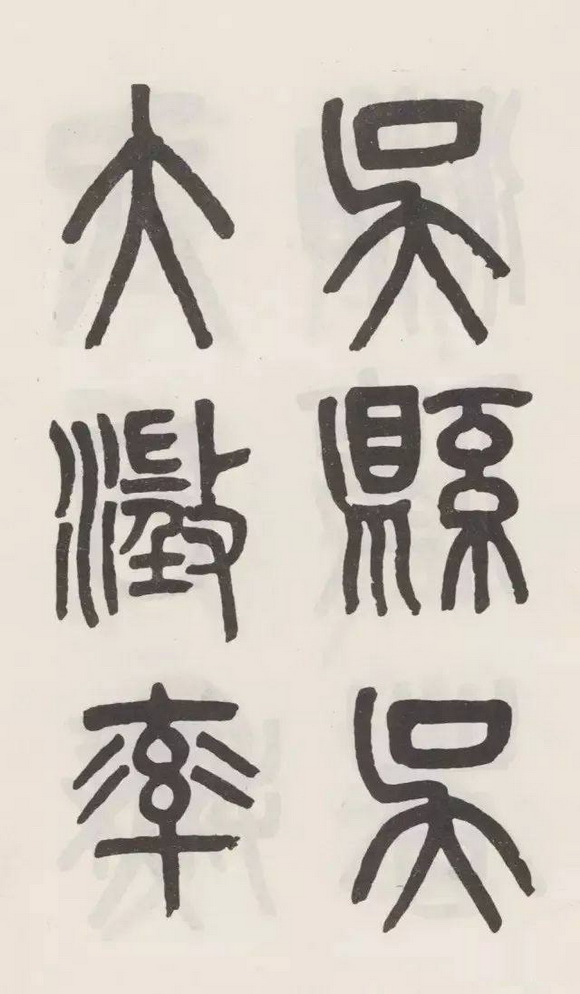 吳縣吳
大澂率